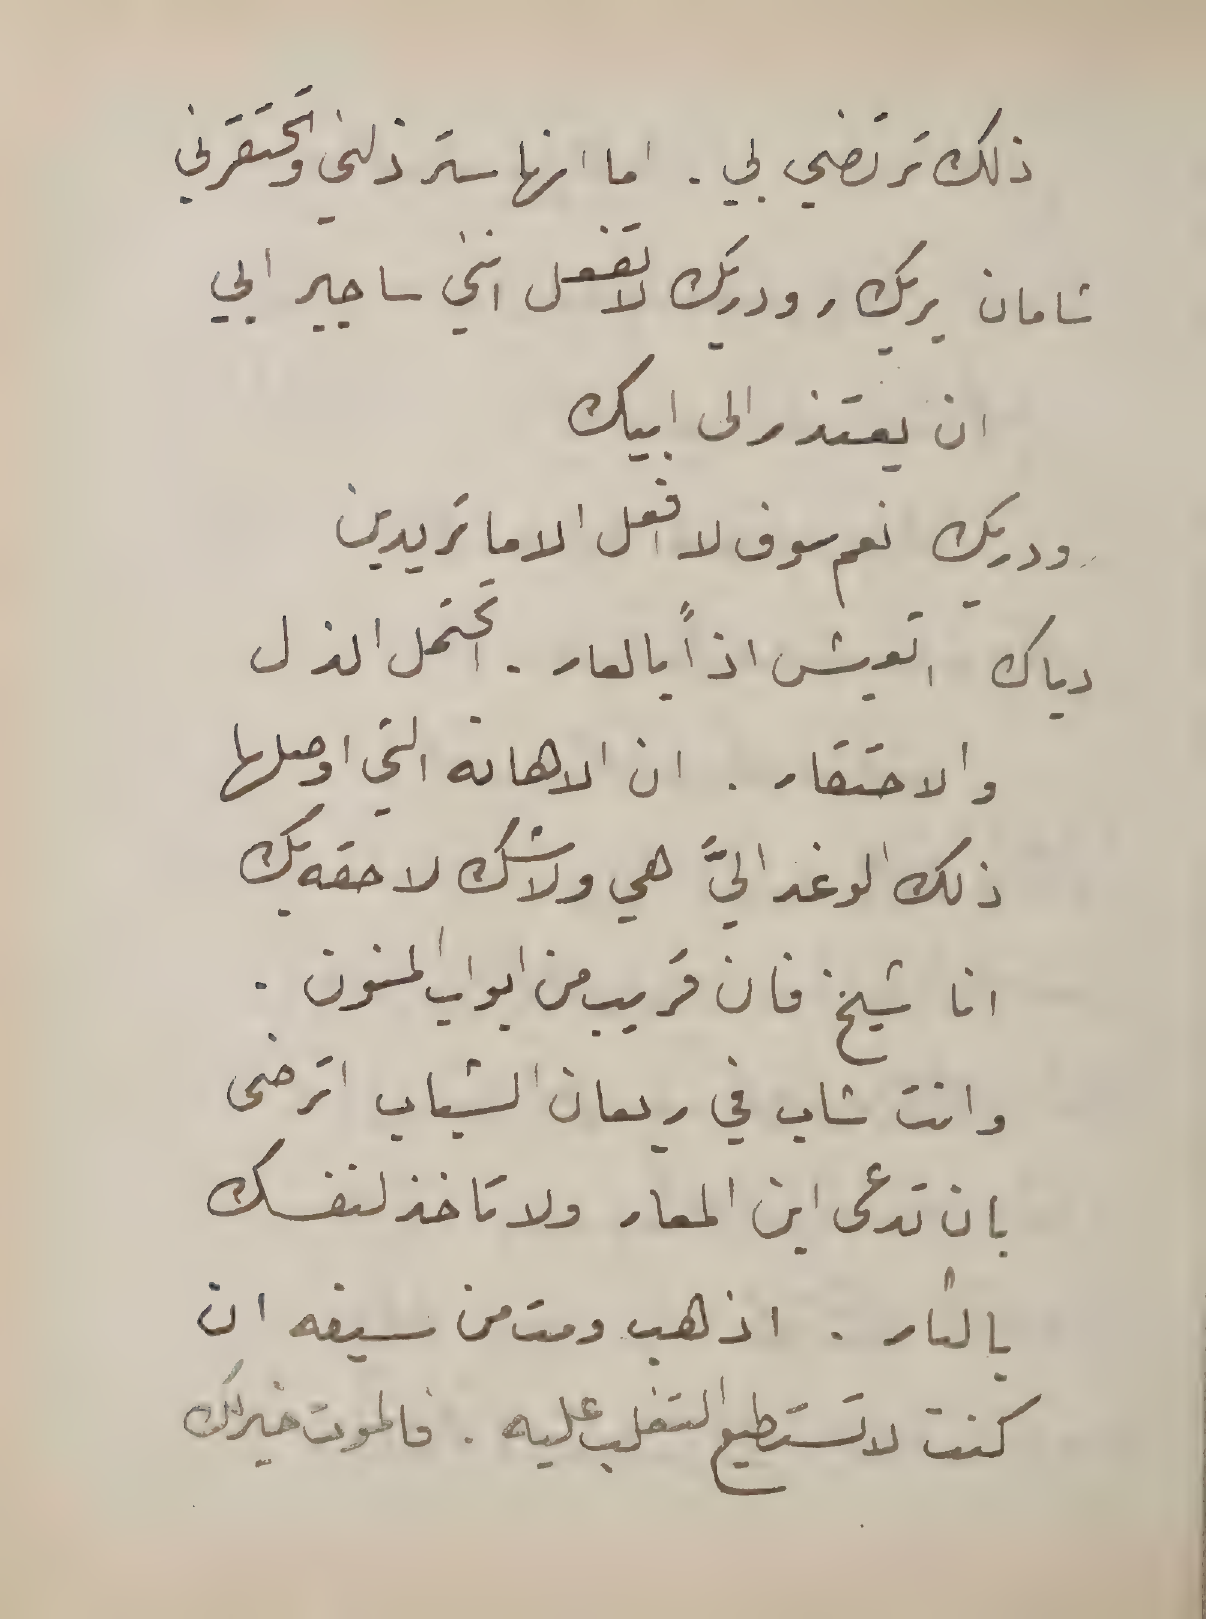 ذلك ترتضي لي . اما انها سترذلني وتحتقرني
شامان يريك , ودريك لا تفعل انني ساجبر ابي
ان يعتذر الى ابيك
ودريك نعم سوف لا افعل الا ما تريدين
دياك اتعيش اذاً بالعار . اتحتمل الذل
والاحتقار . ان الاهانه التي اوصلها
ذلك الوغد اليَّ هي ولاشك لاحقه بك
انا شيخ فان قريب من ابواب المنون .
وانت شاب في ريعان الشباب اترضى
بان تدعى ابن المعار ولا تاخذ لنفسك
بالثار . اذهب ومت من سيفه ان
كنت لا تستطيع التغلب عليه . فالموت خير لك